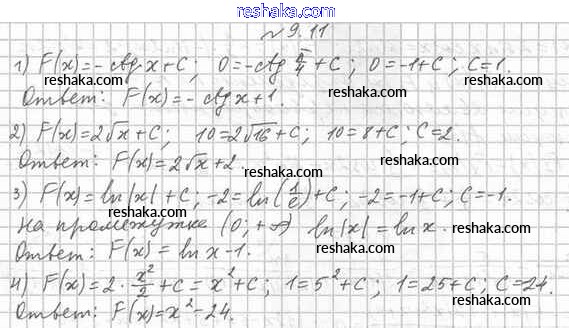 www.reshaka.com
№ 9.11
1) F(x)=-ctg x+C; 0=-ctg π/4+C; 0=-1+C; C=1.
reshaka.com reshaka.com reshaka.com
Ответ: F(x)=-ctg x+1.
2) F(x)=2√x+C; 10=2√16+C; 10=8+C; C=2.
reshaka.com reshaka.com
Ответ: F(x)=2√x+2.
reshaka.com
3) F(x)=ln|x|+C; -2=ln(1/e)+C; -2=-1+C; C=-1.
reshaka.com
на промежутке (0;+∞) ln|x|=ln x.
reshaka.com reshaka.com
Ответ: F(x)=ln x-1.
reshaka.com
4) F(x)=2·x²/2+C=x²+C; 1=5²+C; 1=25+C; C=24.
reshaka.com reshaka.com
Ответ: F(x)=x²-24.
reshaka.com